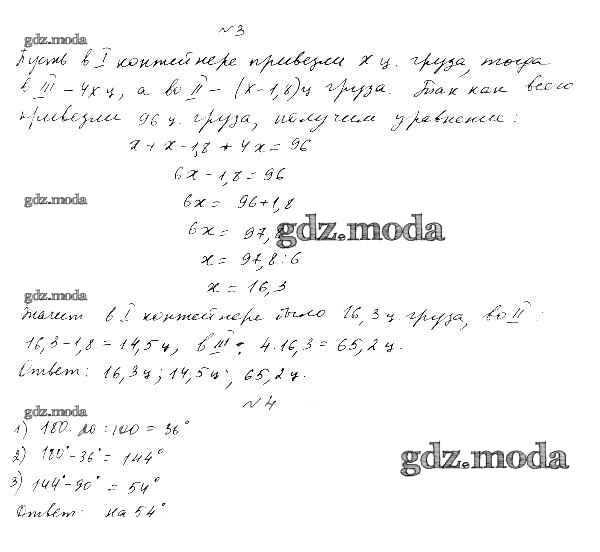 №3
gdz.moda
Пусть в I контейнере привезли x ц. груза, тогда
в III – 4x ц, а во II – (x-1,8)ц груза. Так как всего
привезли 96 ц. груза, получим уравнение:
x + x - 1,8 + 4x = 96
6x - 1,8 = 96
gdz.moda
6x = 96+1,8
6x = 97,8
gdz.moda
x = 97,8:6
x = 16,3
gdz.moda
Значит в I контейнере было 16,3 ц. груза, во II:
16,3-1,8 = 14,5 ц, в III: 4·16,3 = 65,2 ц.
Ответ: 16,3 ц; 14,5 ц; 65,2 ц.
№4
gdz.moda
1) 180· :100 = 36°
2) 180°-36° = 144°
gdz.moda
3) 144°-90° = 54°
Ответ: на 54°